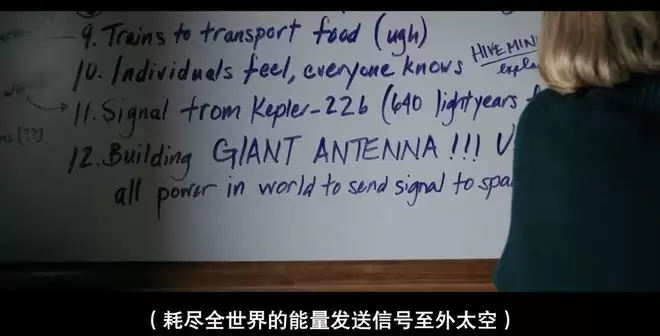 9. Trains to transport food (ugh)
10. Individuals feel, everyone knows
HIVE
11. Signal from Kepler-22b (640 lightyears
12. Building GIANT ANTENNA!!!
all power in world to send signal to
（耗尽全世界的能量发送信号至外太空）